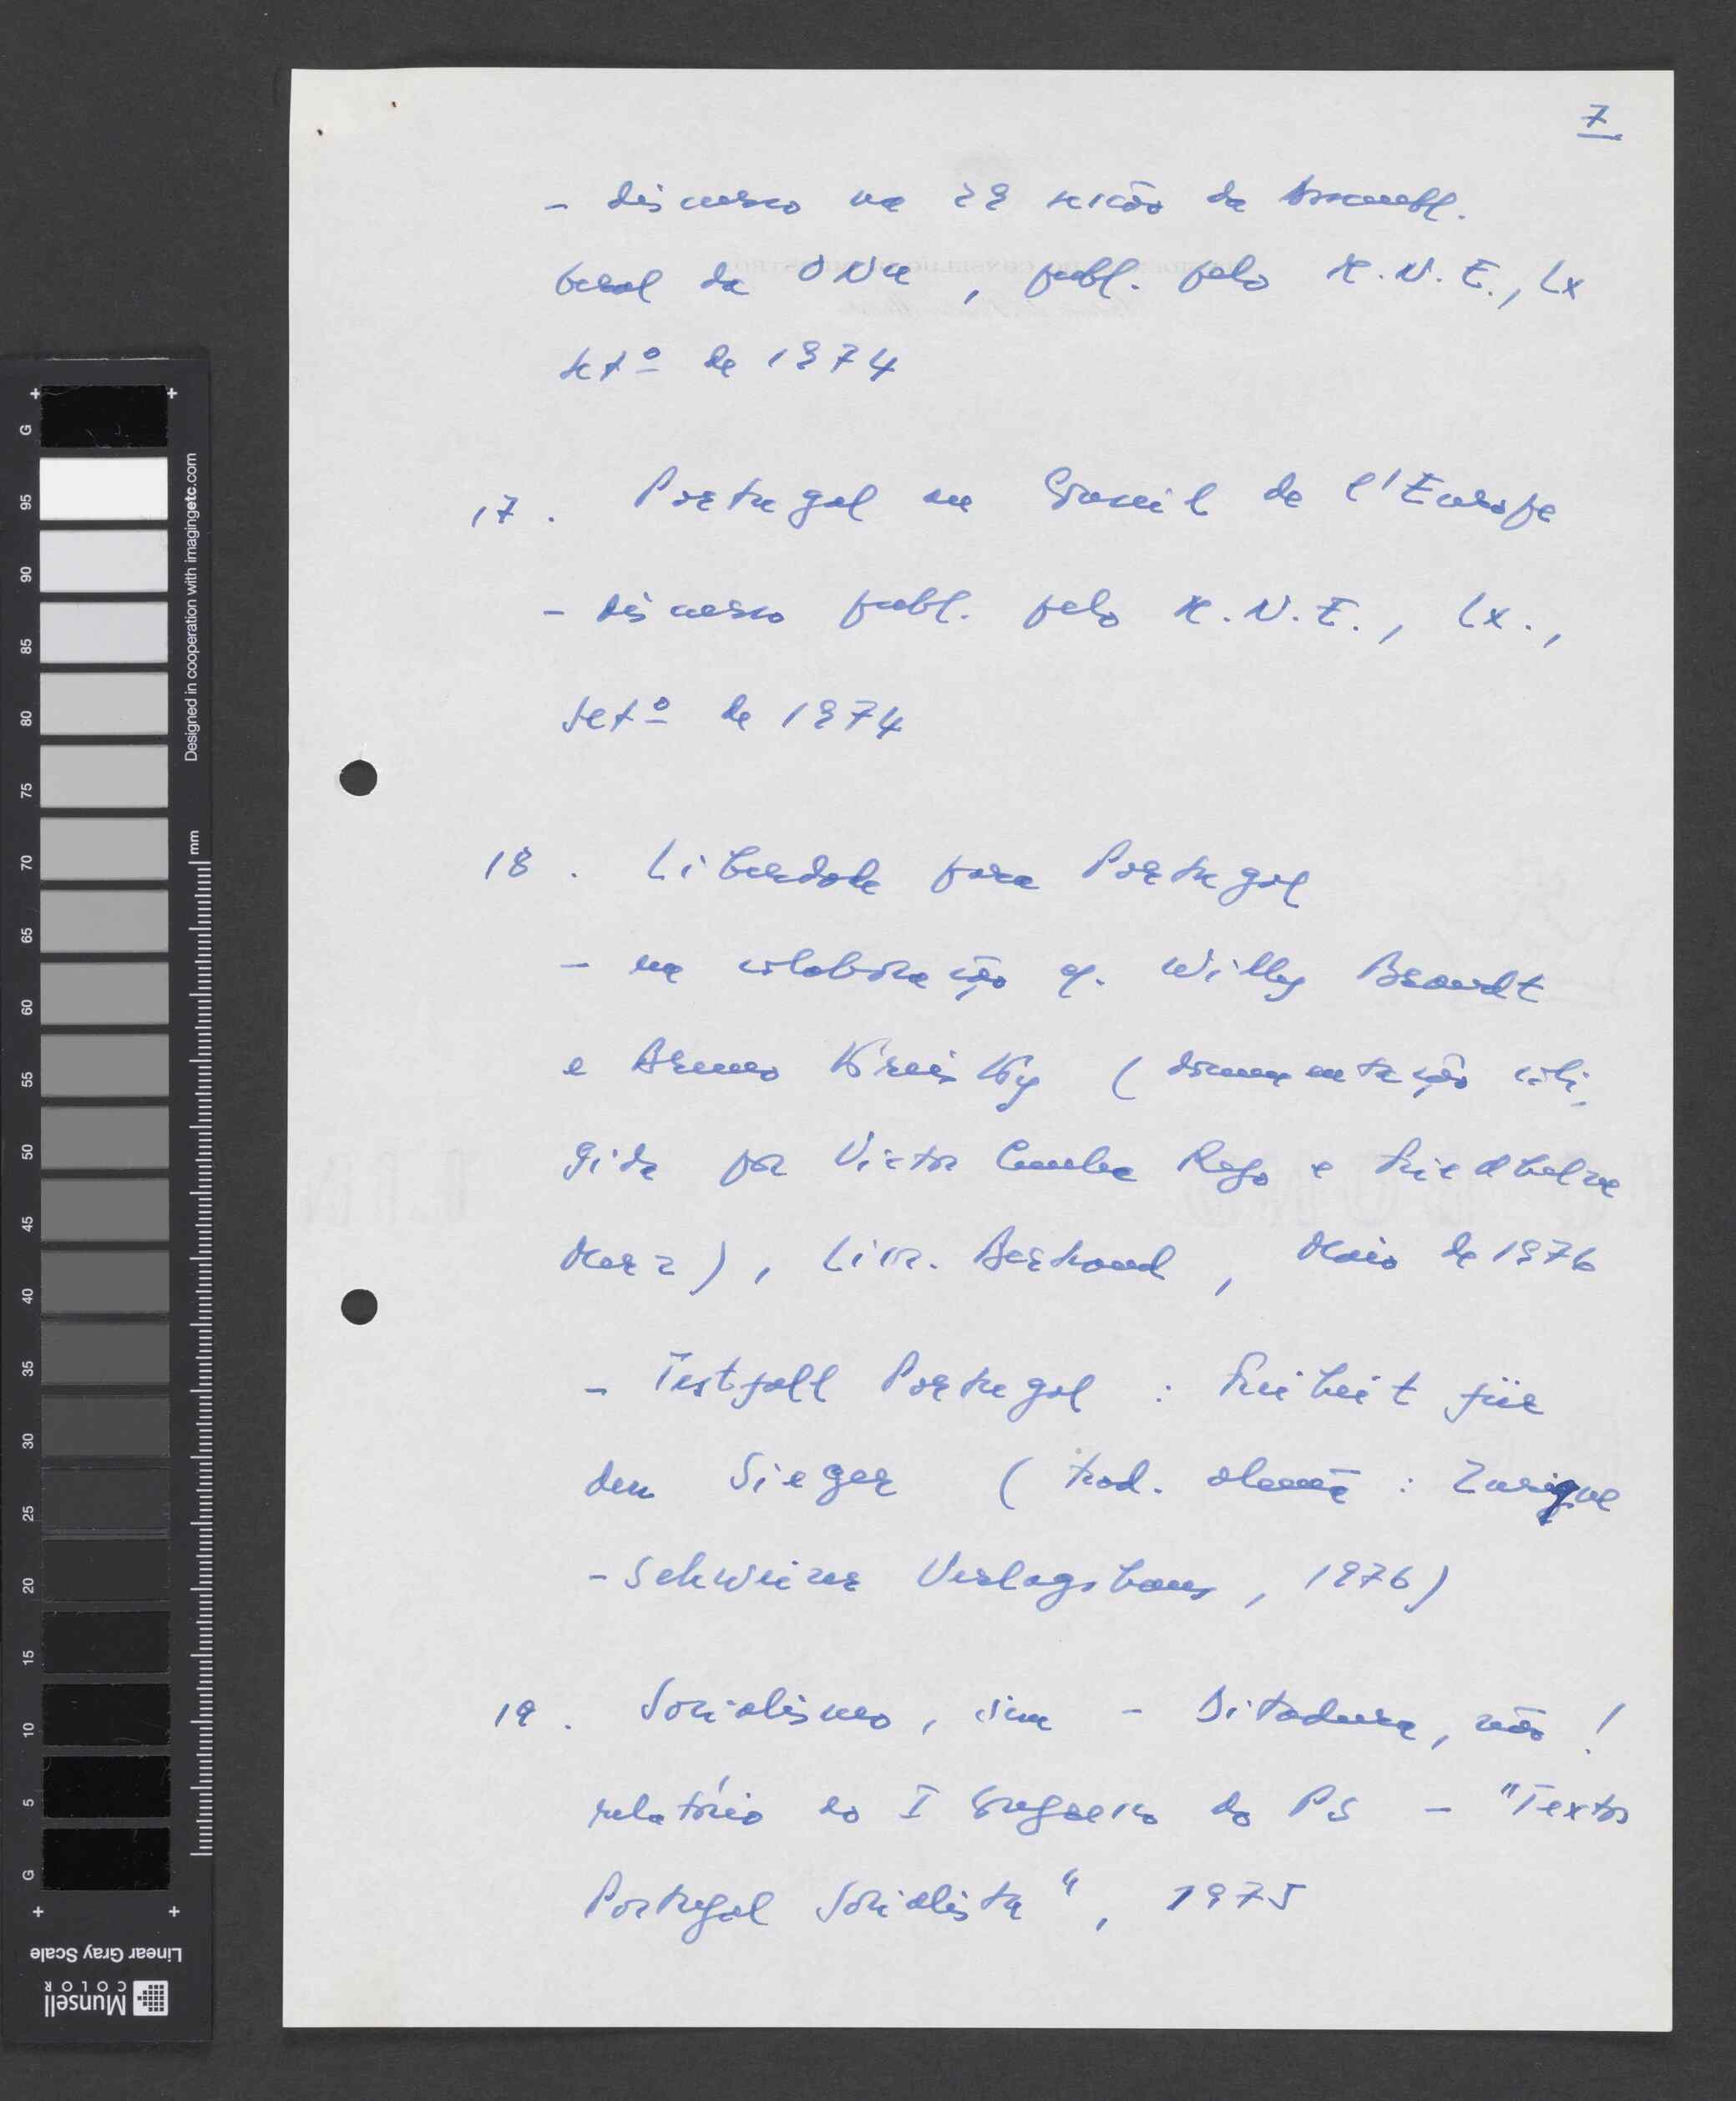 7
- discurso na 29 seição da Assembl.
Geral da ONU, publ. pelo M.N.E., Lx
setº de 1974
17. Portugal au Conseil de l'Europe
- discurso publ. pelo M.N.E., Lx.,
Setº de 1974
18. Liberdade para Portugal
- na colaboração c/. Willy Brandt
e Bruno Kreisky (documentação coli-
gida por Victor Cunha Rego e Friedhelm
Merz), Livr. Bertrand, Maio de 1976
- Testfall Portugal : Freiheit für
den Sieger (trad. alemã : Zurique
- Schweizer Verlagshaus, 1976)
19. Socialismo, sim - Ditadura, não!
relatório ao I Congresso do PS - "Textos
Portugal Socialista", 1975
G
95
90
85
80
75
70
65
60
55
50
45
40
35
30
25
20
15
10
5
G
mm
Designed in cooperation with imagingetc.com
Linear Gray Scale
Munsell
COLOR